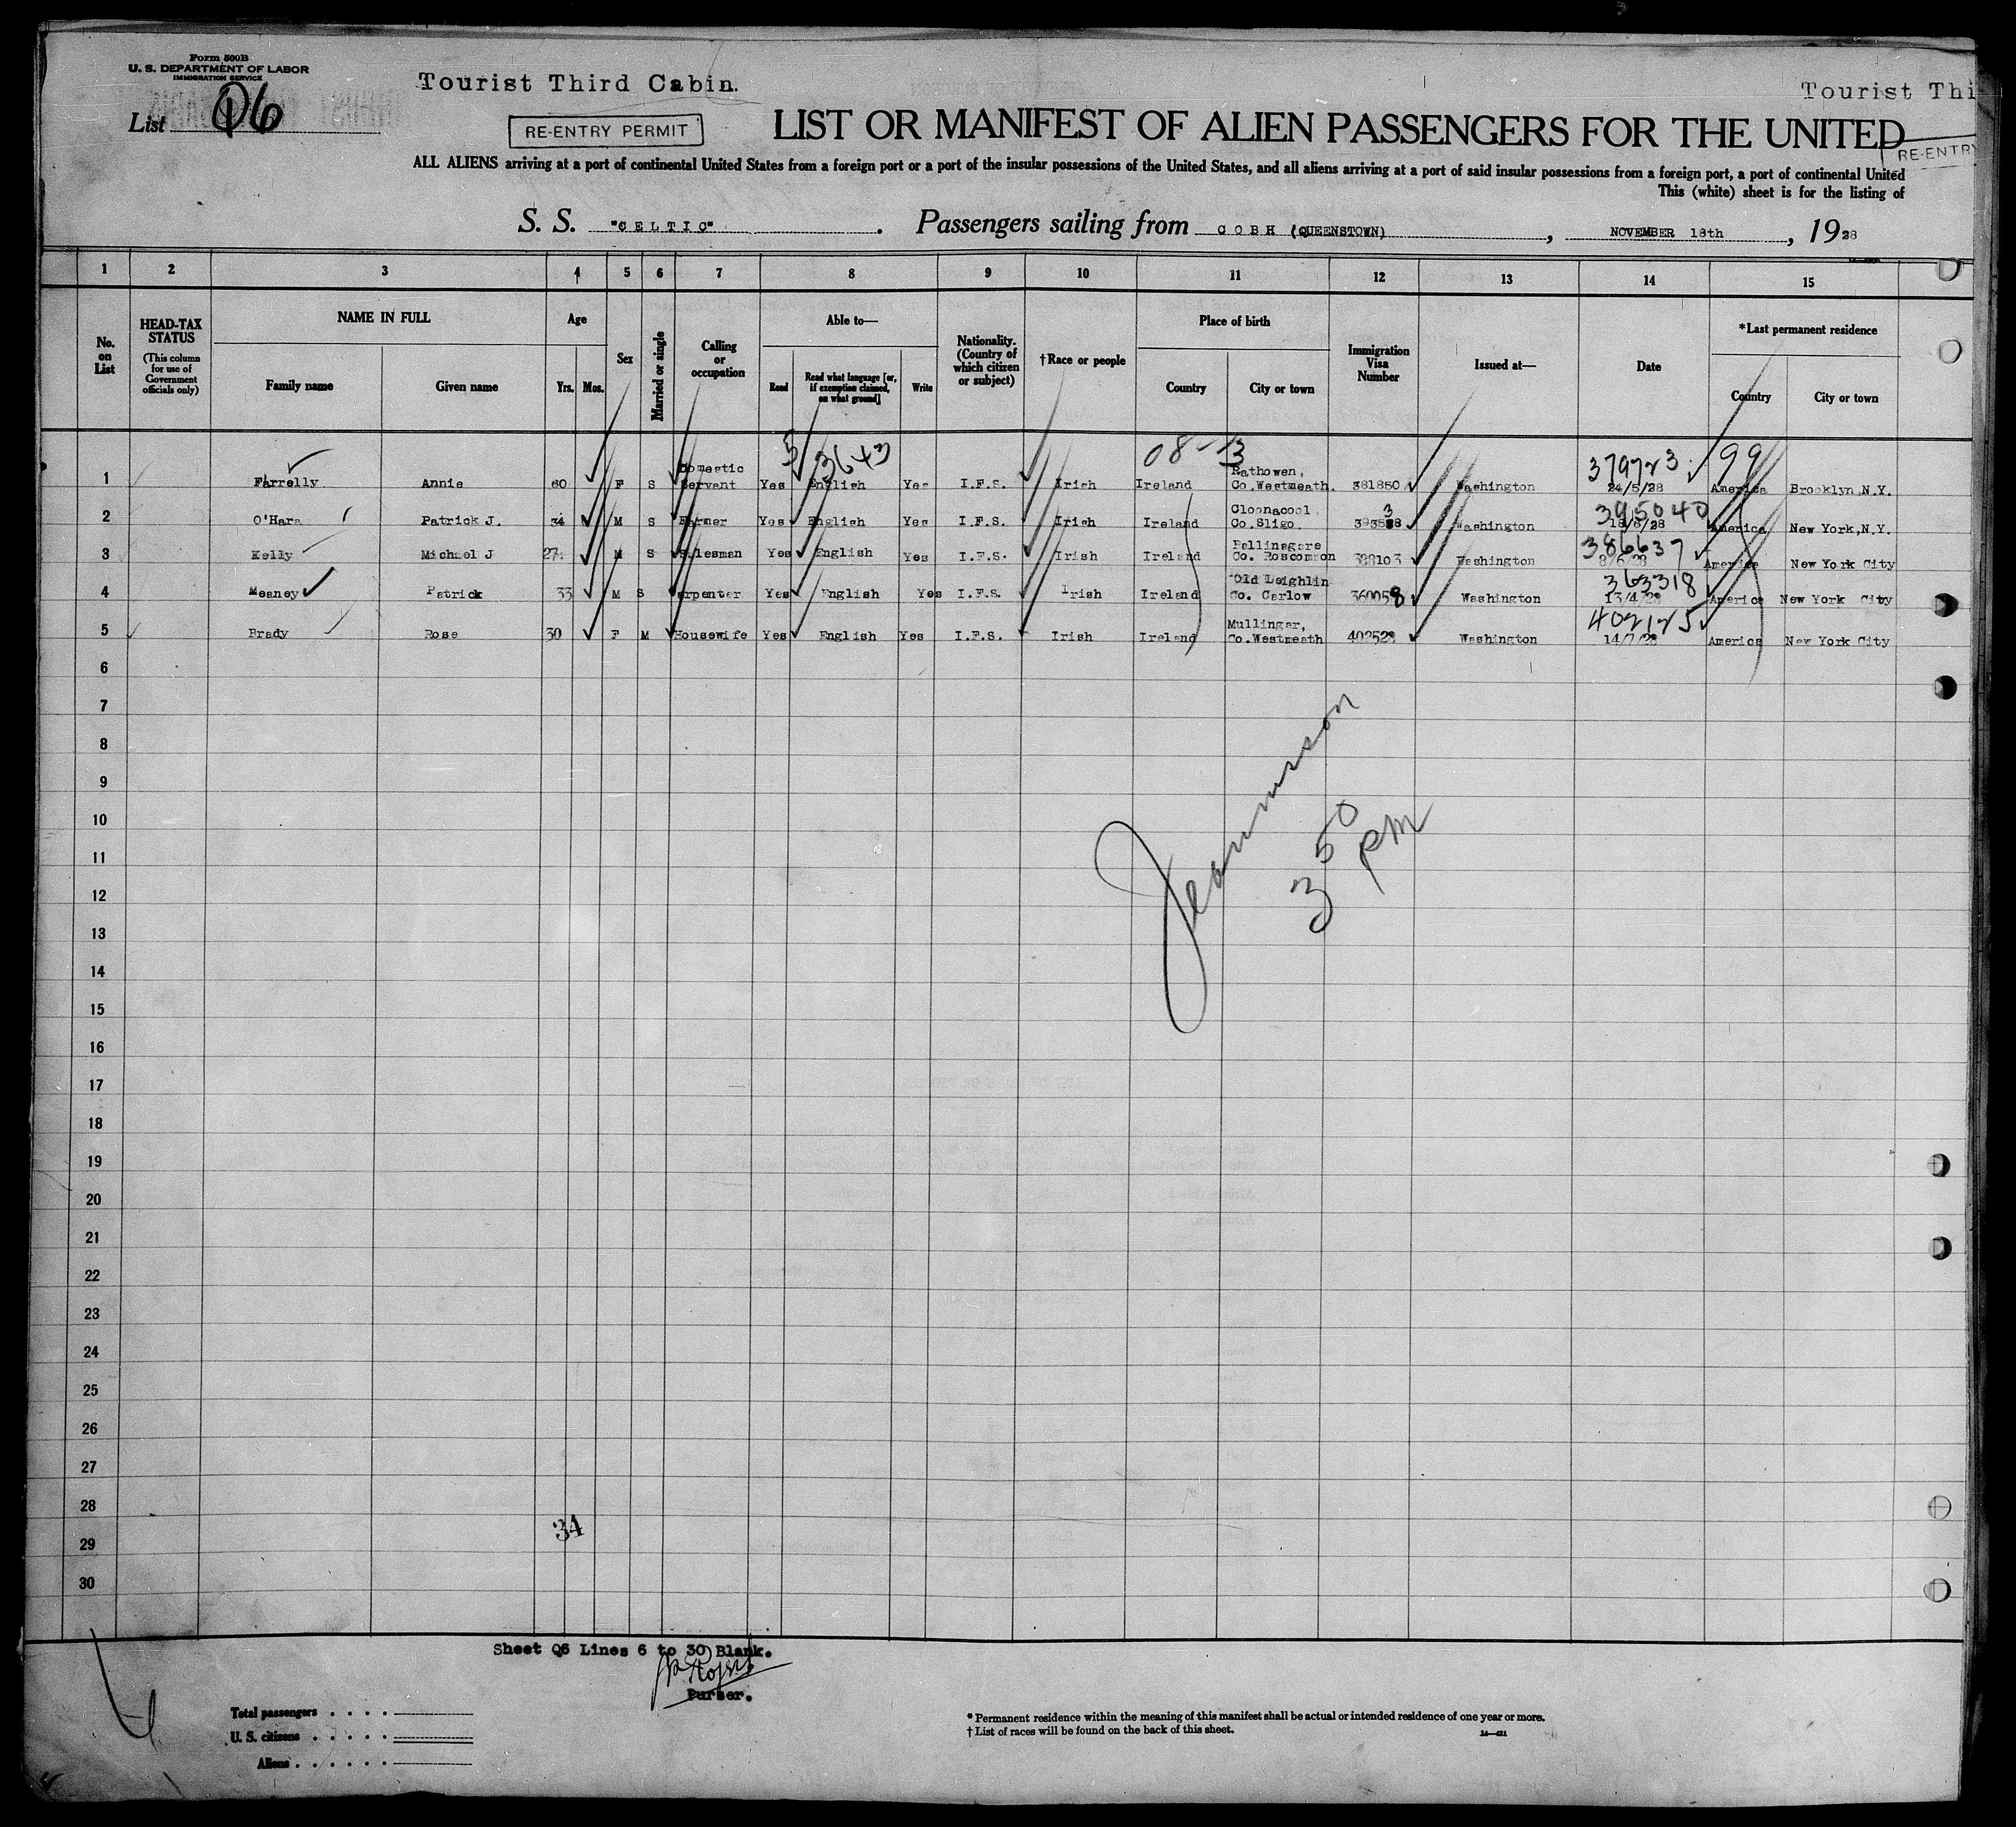 Form 500B
U. S. DEPARTMENT OF LABOR
IMMIGRATION SERVICE
List 6
Tourist Third Cabin.
Tourist Thi
RE-ENTRY PERMIT
LIST OR MANIFEST OF ALIEN PASSENGERS FOR THE UNITED
RE-ENTRY
ALL ALIENS arriving at a port of continental United States from a foreign port or a port of the insular possessions of the United States, and all aliens arriving at a port of said insular possessions from a foreign port, a port of continental United
This (white) sheet is for the listing of
S. S. "CELTIC". Passengers sailing from COBH (QUEENSTOWN), NOVEMBER 18th, 1928
1 2 3 4 5 6 7 8 9 10 11 12 13 14 15
No. on List
HEAD-TAX STATUS
(This column for use of Government officials only)
NAME IN FULL
Family name
Given name
Age
Yrs.
Mos.
Sex
Married or single
Calling or occupation
Able to—
Read
Read what language [or, if exemption claimed, on what ground]
Write
Nationality. (Country of which citizen or subject)
†Race or people
Place of birth
Country
City or town
Immigration Visa Number
Issued at—
Date
*Last permanent residence
Country
City or town
3643 08-13 379723 99
1 Farrelly Annie 60 F S Domestic Servant Yes English Yes I.F.S. Irish Ireland Rathowen, Co.Westmeath. 381850 Washington 24/5/28 America Brooklyn,N.Y.
395040
2 O'Hara Patrick J. 34 M S Farmer Yes English Yes I.F.S. Irish Ireland Cloonacool Co.Sligo. Washington 18/6/28 America New York,N.Y.
386637
3 Kelly Michael J 27 M S Salesman Yes English Yes I.F.S. Irish Ireland Ballinagare Co. Roscommon 388103 Washington 8/6/28 America New York City
363318
4 Meaney Patrick 33 M S Carpenter Yes English Yes I.F.S. Irish Ireland Old Leighlin Co. Carlow 360058 Washington 13/4/28 America New York City
402125
5 Brady Rose 30 F M Housewife Yes English Yes I.F.S. Irish Ireland Mullingar, Co.Westmeath 402528 Washington 14/7/28 America New York City
6
7
8
9
10
11
12
13
14
15
16
17
18
19
20
21
22
23
24
25
26
27
28
29
30
3 50 pm
34
Sheet Q6 Lines 6 to 30 Blank.
Purser.
Total passengers
U. S. citizens
Aliens
* Permanent residence within the meaning of this manifest shall be actual or intended residence of one year or more.
† List of races will be found on the back of this sheet.